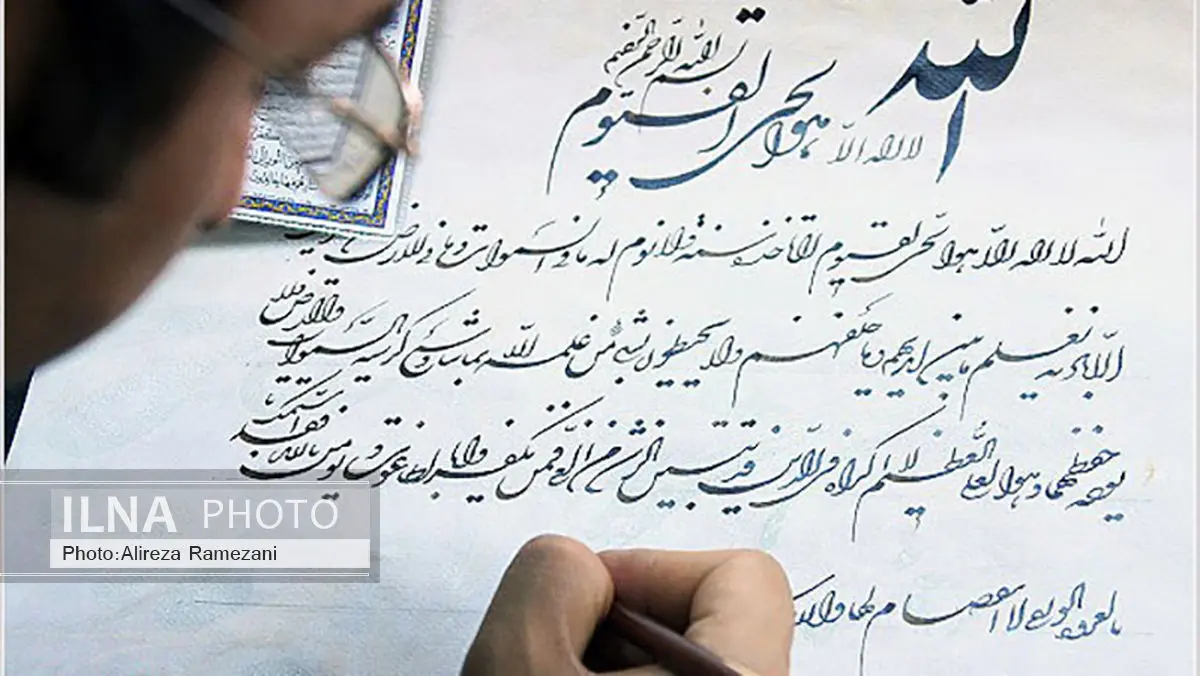 بسم الله الرحمن الرحیم
الله لا اله الا هو الحی القیوم
الله لا اله الا هو الحی القیوم لا تاخذه سنة و لا نوم له ما فی السموات و ما فی الارض
الا باذنه یعلم ما بین ایدیهم و ما خلفهم و لا یحیطون بشئ من علمه الا بما شاء وسع کرسیه السموات والارض ولا
یوده حفظهما و هو العلی العظیم لا اکراه فی الدین قد تبین الرشد من الغی فمن یکفر بالطاغوت و یومن بالله فقد استمسک
بالعروة الوثقی لا انفصام لها والله
ILNA PHOTO
Photo:Alireza Ramezani